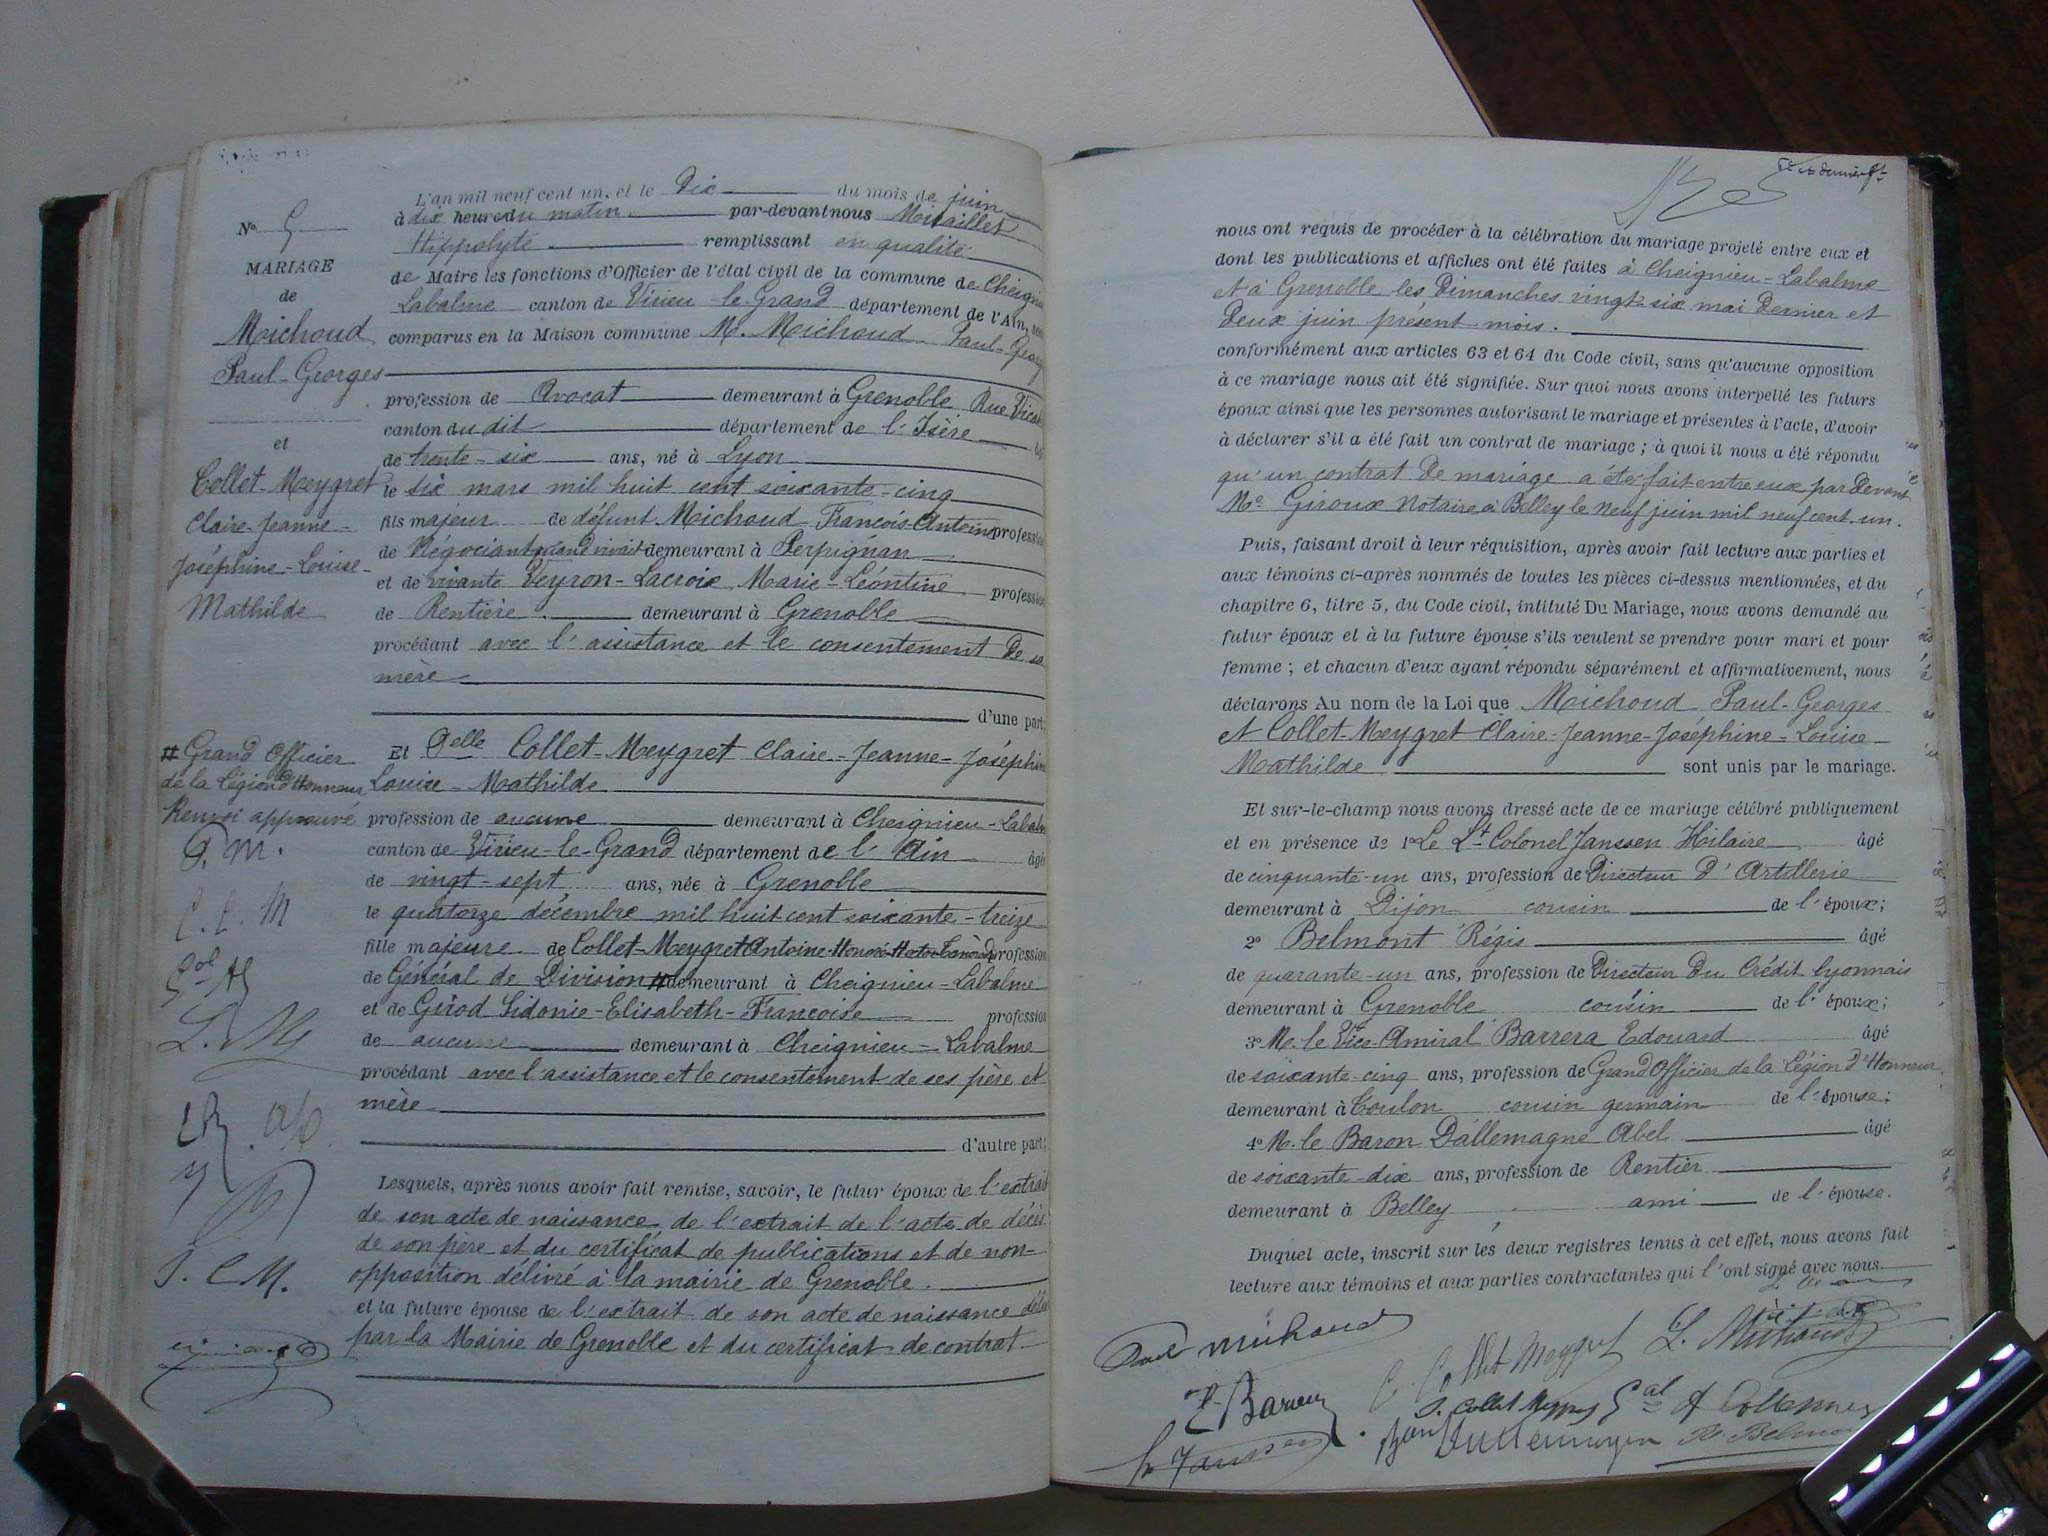 N° 5
MARIAGE
de
Michoud
Paul-Georges
et
Collet-Meygret
Claire-Jeanne-
Joséphine-Louise-
Mathilde
# Grand Officier
de la Légion d'Honneur
Renvoi approuvé
P. M.
C. C. M
L. M
S. C M.
L'an mil neuf cent un, et le Dix du mois de juin
à dix heures du matin par-devant nous
Hippolyte remplissant en qualité
de Maire les fonctions d'Officier de l'état civil de la commune de Cheignieu
Labalme canton de Virieu-le-Grand département de l'Ain,
comparus en la Maison commune M. Michoud Paul-Georg
profession de Avocat demeurant à Grenoble Rue
canton du dit département de l'Isère
de trente-six ans, né à Lyon
le six mars mil huit cent soixante-cinq
fils majeur de défunt Michoud François-Antoine profession
de Négociant quand vivait demeurant à Perpignan
et de vivante Veyron-Lacroix Marie-Léontine profession
de Rentière demeurant à Grenoble
procédant avec l'assistance et le consentement de sa
mère
d'une part;
Et Delle Collet-Meygret Claire-Jeanne-Joséphine
Louise-Mathilde
profession de aucune demeurant à Cheignieu-Labalm
canton de Virieu-le-Grand département de l'Ain âgé
de vingt-sept ans, née à Grenoble
le quatorze décembre mil huit cent soixante-treize
fille majeure de Collet-Meygret Antoine-Honoré-Hector profession
de Général de Division # demeurant à Cheignieu-Labalme
et de Girod Sidonie-Elisabeth-Françoise profession
de aucune demeurant à Cheignieu-Labalme
procédant avec l'assistance et le consentement de ses père et
mère
d'autre part;
Lesquels, après nous avoir fait remise, savoir, le futur époux de l'extrait
de son acte de naissance de l'extrait de l'acte de décès
de son père et du certificat de publications et de non-
opposition délivré à la mairie de Grenoble.
et la future épouse de l'extrait de son acte de naissance
par la Mairie de Grenoble et du certificat de contrat
nous ont requis de procéder à la célébration du mariage projeté entre eux et
dont les publications et affiches ont été faites à Cheignieu-Labalme
et à Grenoble les Dimanches vingt-six mai Dernier et
Deux juin présent mois.
conformément aux articles 63 et 64 du Code civil, sans qu'aucune opposition
à ce mariage nous ait été signifiée. Sur quoi nous avons interpellé les futurs
époux ainsi que les personnes autorisant le mariage et présentes à l'acte, d'avoir
à déclarer s'il a été fait un contrat de mariage ; à quoi il nous a été répondu
qu'un contrat de mariage a été fait entre eux par Devant
Me Giroux Notaire à Belley le neuf juin mil neuf cent un.
Puis, faisant droit à leur réquisition, après avoir fait lecture aux parties et
aux témoins ci-après nommés de toutes les pièces ci-dessus mentionnées, et du
chapitre 6, titre 5, du Code civil, intitulé Du Mariage, nous avons demandé au
futur époux et à la future épouse s'ils veulent se prendre pour mari et pour
femme ; et chacun d'eux ayant répondu séparément et affirmativement, nous
déclarons Au nom de la Loi que Michoud Paul-Georges
et Collet-Meygret Claire-Jeanne-Joséphine-Louise-
Mathilde sont unis par le mariage.
Et sur-le-champ nous avons dressé acte de ce mariage célébré publiquement
et en présence de 1° Le Lt-Colonel Janssen Hilaire âgé
de cinquante-un ans, profession de Directeur d'Artillerie
demeurant à Dijon cousin de l'époux;
2° Belmont Régis âgé
de quarante-un ans, profession de Directeur Du Crédit lyonnais
demeurant à Grenoble cousin de l'époux;
3° M. le Vice-Amiral Barrera Edouard âgé
de soixante-cinq ans, profession de Grand Officier de la Légion d'Honneur
demeurant à Toulon cousin germain de l'épouse;
4° M. le Baron Dallemagne Abel âgé
de soixante-dix ans, profession de Rentier
demeurant à Belley ami de l'épouse.
Duquel acte, inscrit sur les deux registres tenus à cet effet, nous avons fait
lecture aux témoins et aux parties contractantes qui l'ont signé avec nous.
Paul Michoud
C Collet Meygret
L. Michoud
S. Collet Meygret
Dallemagne
R. Belmont